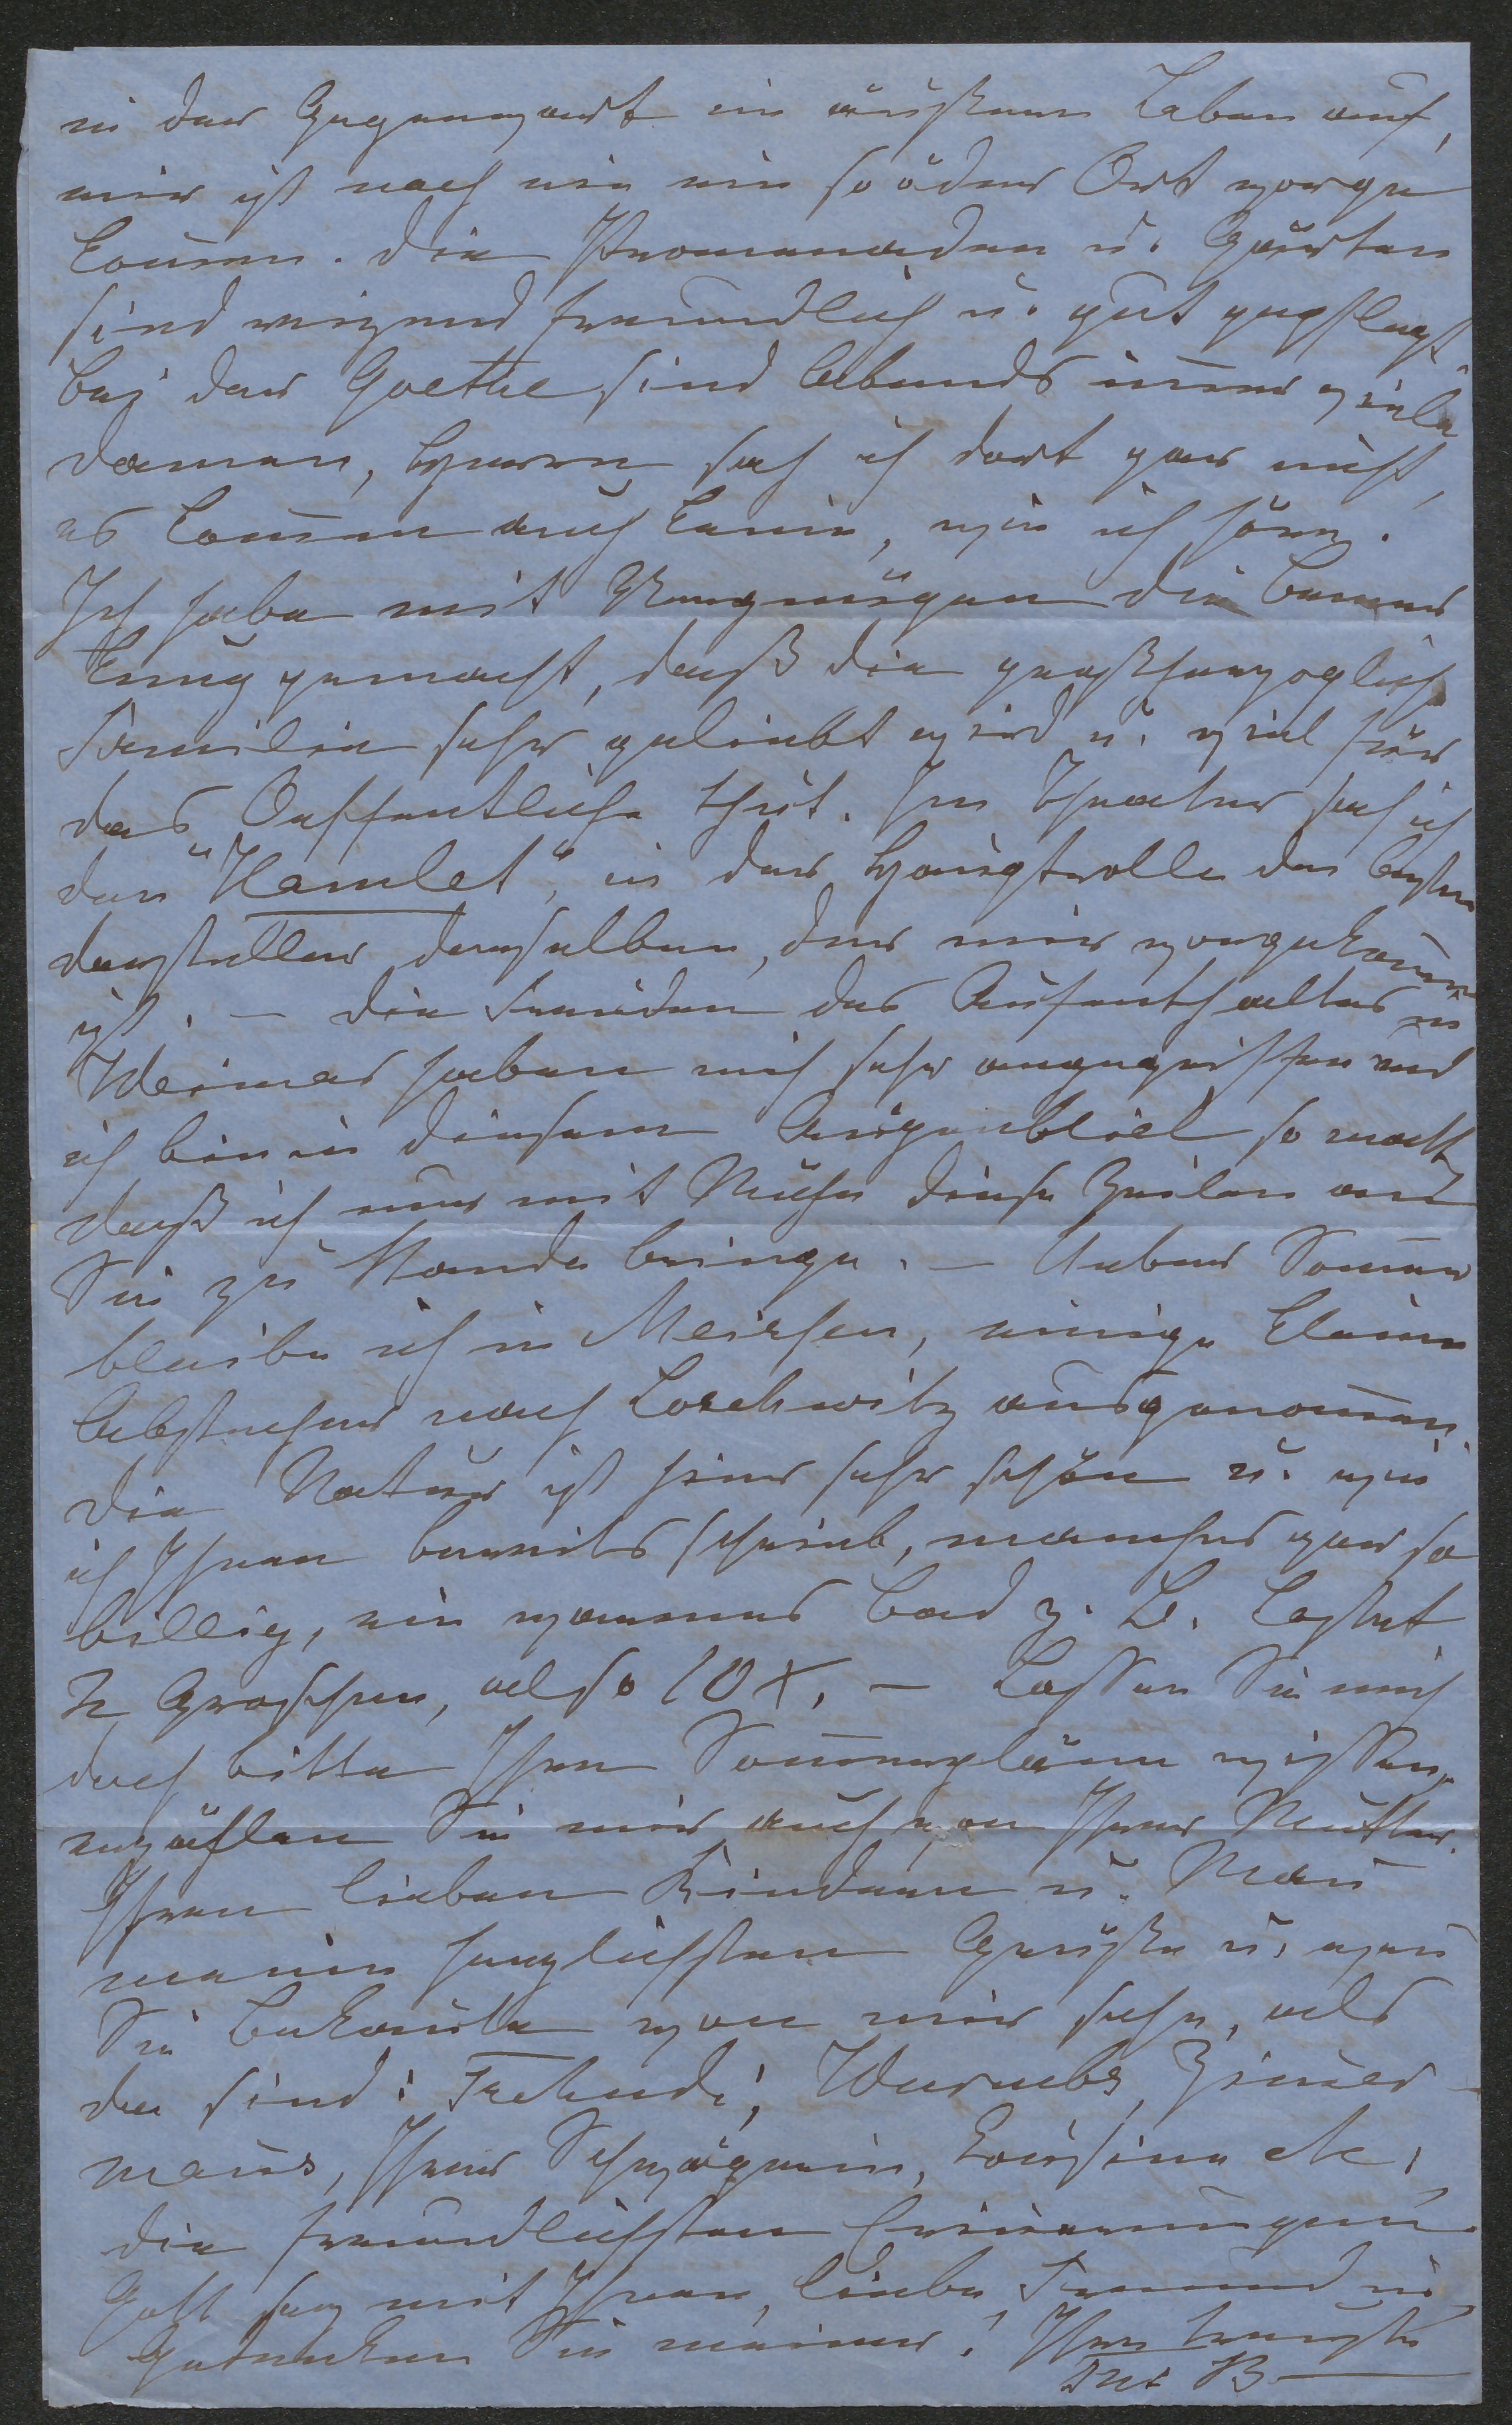 in der Gegenwart ein äußeres Leben auf,
mir ist noch nie ein so öder Ort vorge
kom̄en. Die Promenaden u. Gärten
sind reizend freundlich u. gut gepflegt
bei der Goethe sind Abends im̄er viele
Damen, Herren sah ich dort gar nicht,
es kom̄en auch keine, wie ich höre.
Ich habe mit Vergnügen die Bemer
kung gemacht, daß die großherzoglich
Familie sehr geliebt wird u. viel für
das Oeffentliche thut. Im Theater sah ich
den "Hamlet", in der Hauptrolle den besten
Darsteller desselben, der mir vorgekom̄en
ist. — Die Freuden des Aufenthaltes in
Weimar haben mich sehr angegriffen und
ich bin in diesem Augenblick so matt,
daß ich nur mit Mühe diese Zeilen an
Sie zu Stande bringe. — Ueber Som̄er
bleibe ich in Meissen, einige kleine
Abstecher nach Loschwitz ausgenom̄en.
Die Natur ist hier sehr schön u. wie
ich Ihnen bereits schrieb, manches gar so
billig, ein warmes Bad z. B. kostet
2 Groschen, also 10 x. — Lassen Sie mich
doch bitte Ihre Som̄erpläne wissen,
erzählen Sie mir auch von Ihrer Mutter.
Ihren lieben Kindern u. Man̄
meine herzlichsten Grüße u. wen
Sie Bekan̄te von mir sehn, als
da sind: Tschudi, Zim̄er-
man̄s, Ihre Schwägerin, Cousine etc,
die freundlichsten Erin̄erungen.
Gott sey mit Ihnen, liebe Freundin
Gedenken Sie meiner! Ihre treuste
B